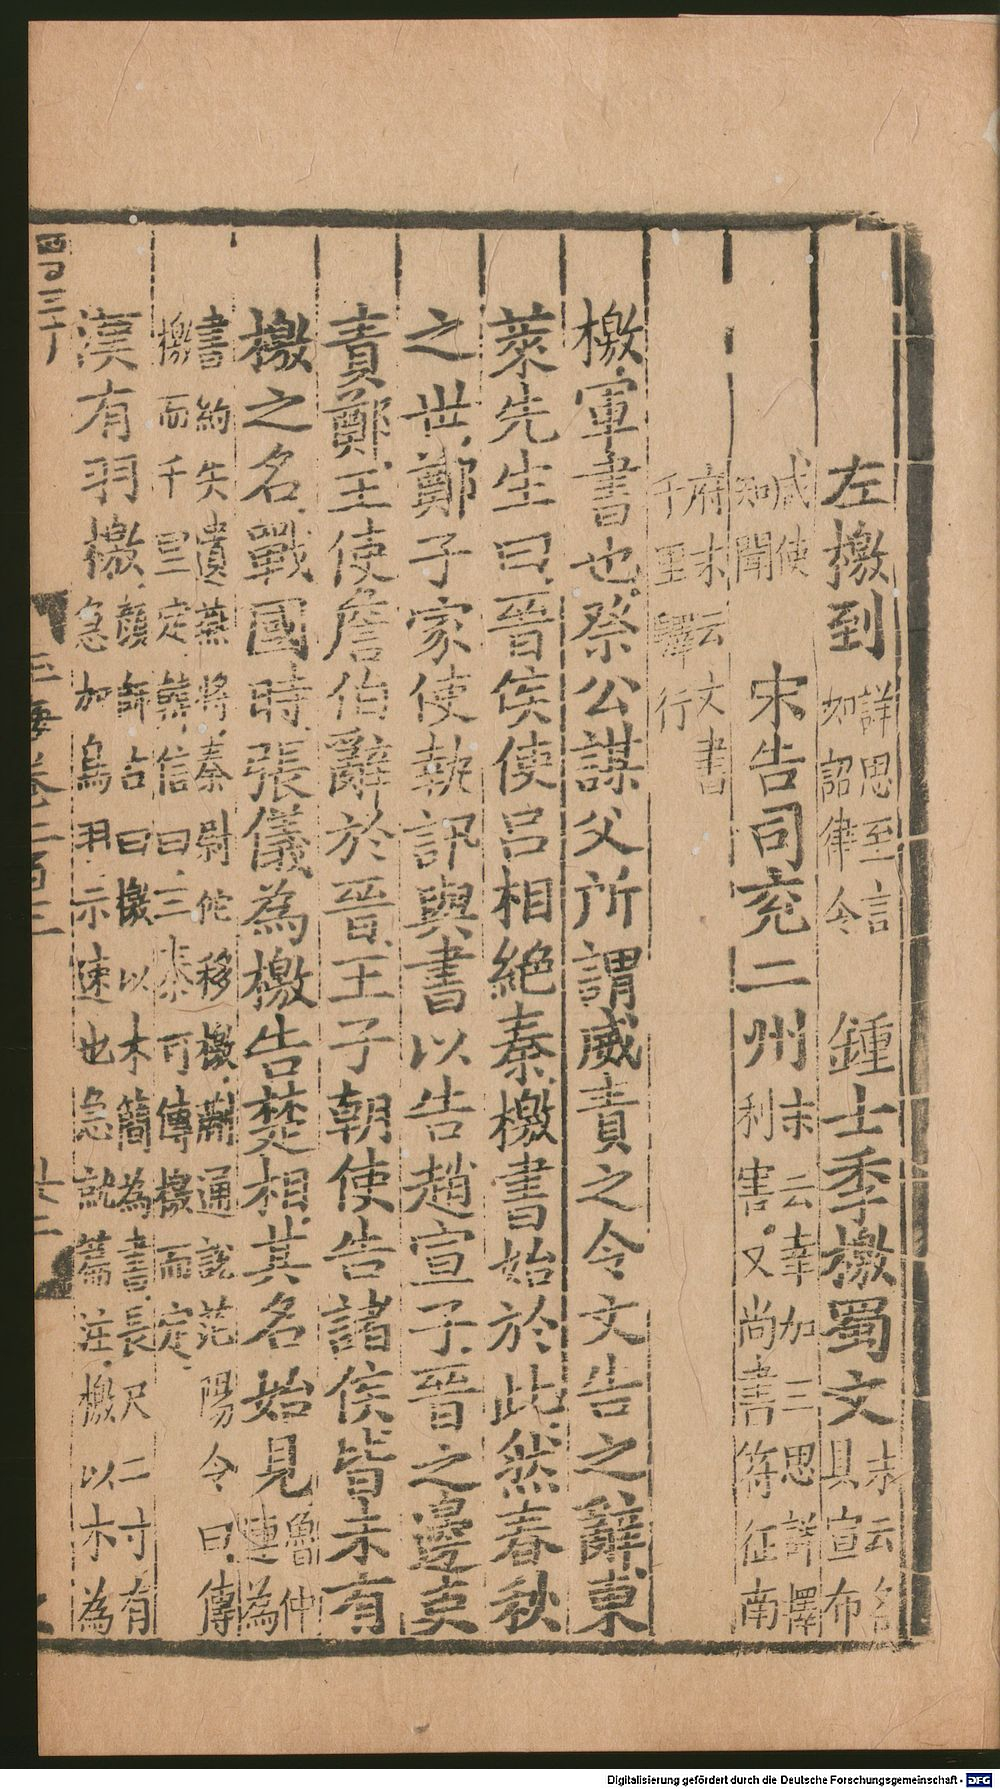 左檄到詳思至言如詔律令 鍾士季檄蜀文末云各具宣布
咸使知聞 宋告司兗二州末云幸加三思詳擇利害又尚書符征南
府末云文書千里驛行
檄軍書也祭公謀父所謂威責之令文告之辭東
萊先生曰晉侯使呂相絶秦檄書始於此然春秋
之世鄭子家使執訊與書以告趙宣子晉之邊吏
責鄭王使詹伯辭於晉王子朝使告諸侯皆未有
檄之名戰國時張儀為檄告楚相其名始見魯仲連為
書約矢遺燕將秦尉佗移檄蒯通說范陽令曰傳檄而千里定韓信曰三秦可傳檄而定
漢有羽檄顏師古曰檄以木簡為書長尺二寸有急加鳥羽示速也急就篇注檄以木為
四百三十
玉海卷二百三
廿二
Digitalisierung gefördert durch die Deutsche Forschungsgemeinschaft - DFG